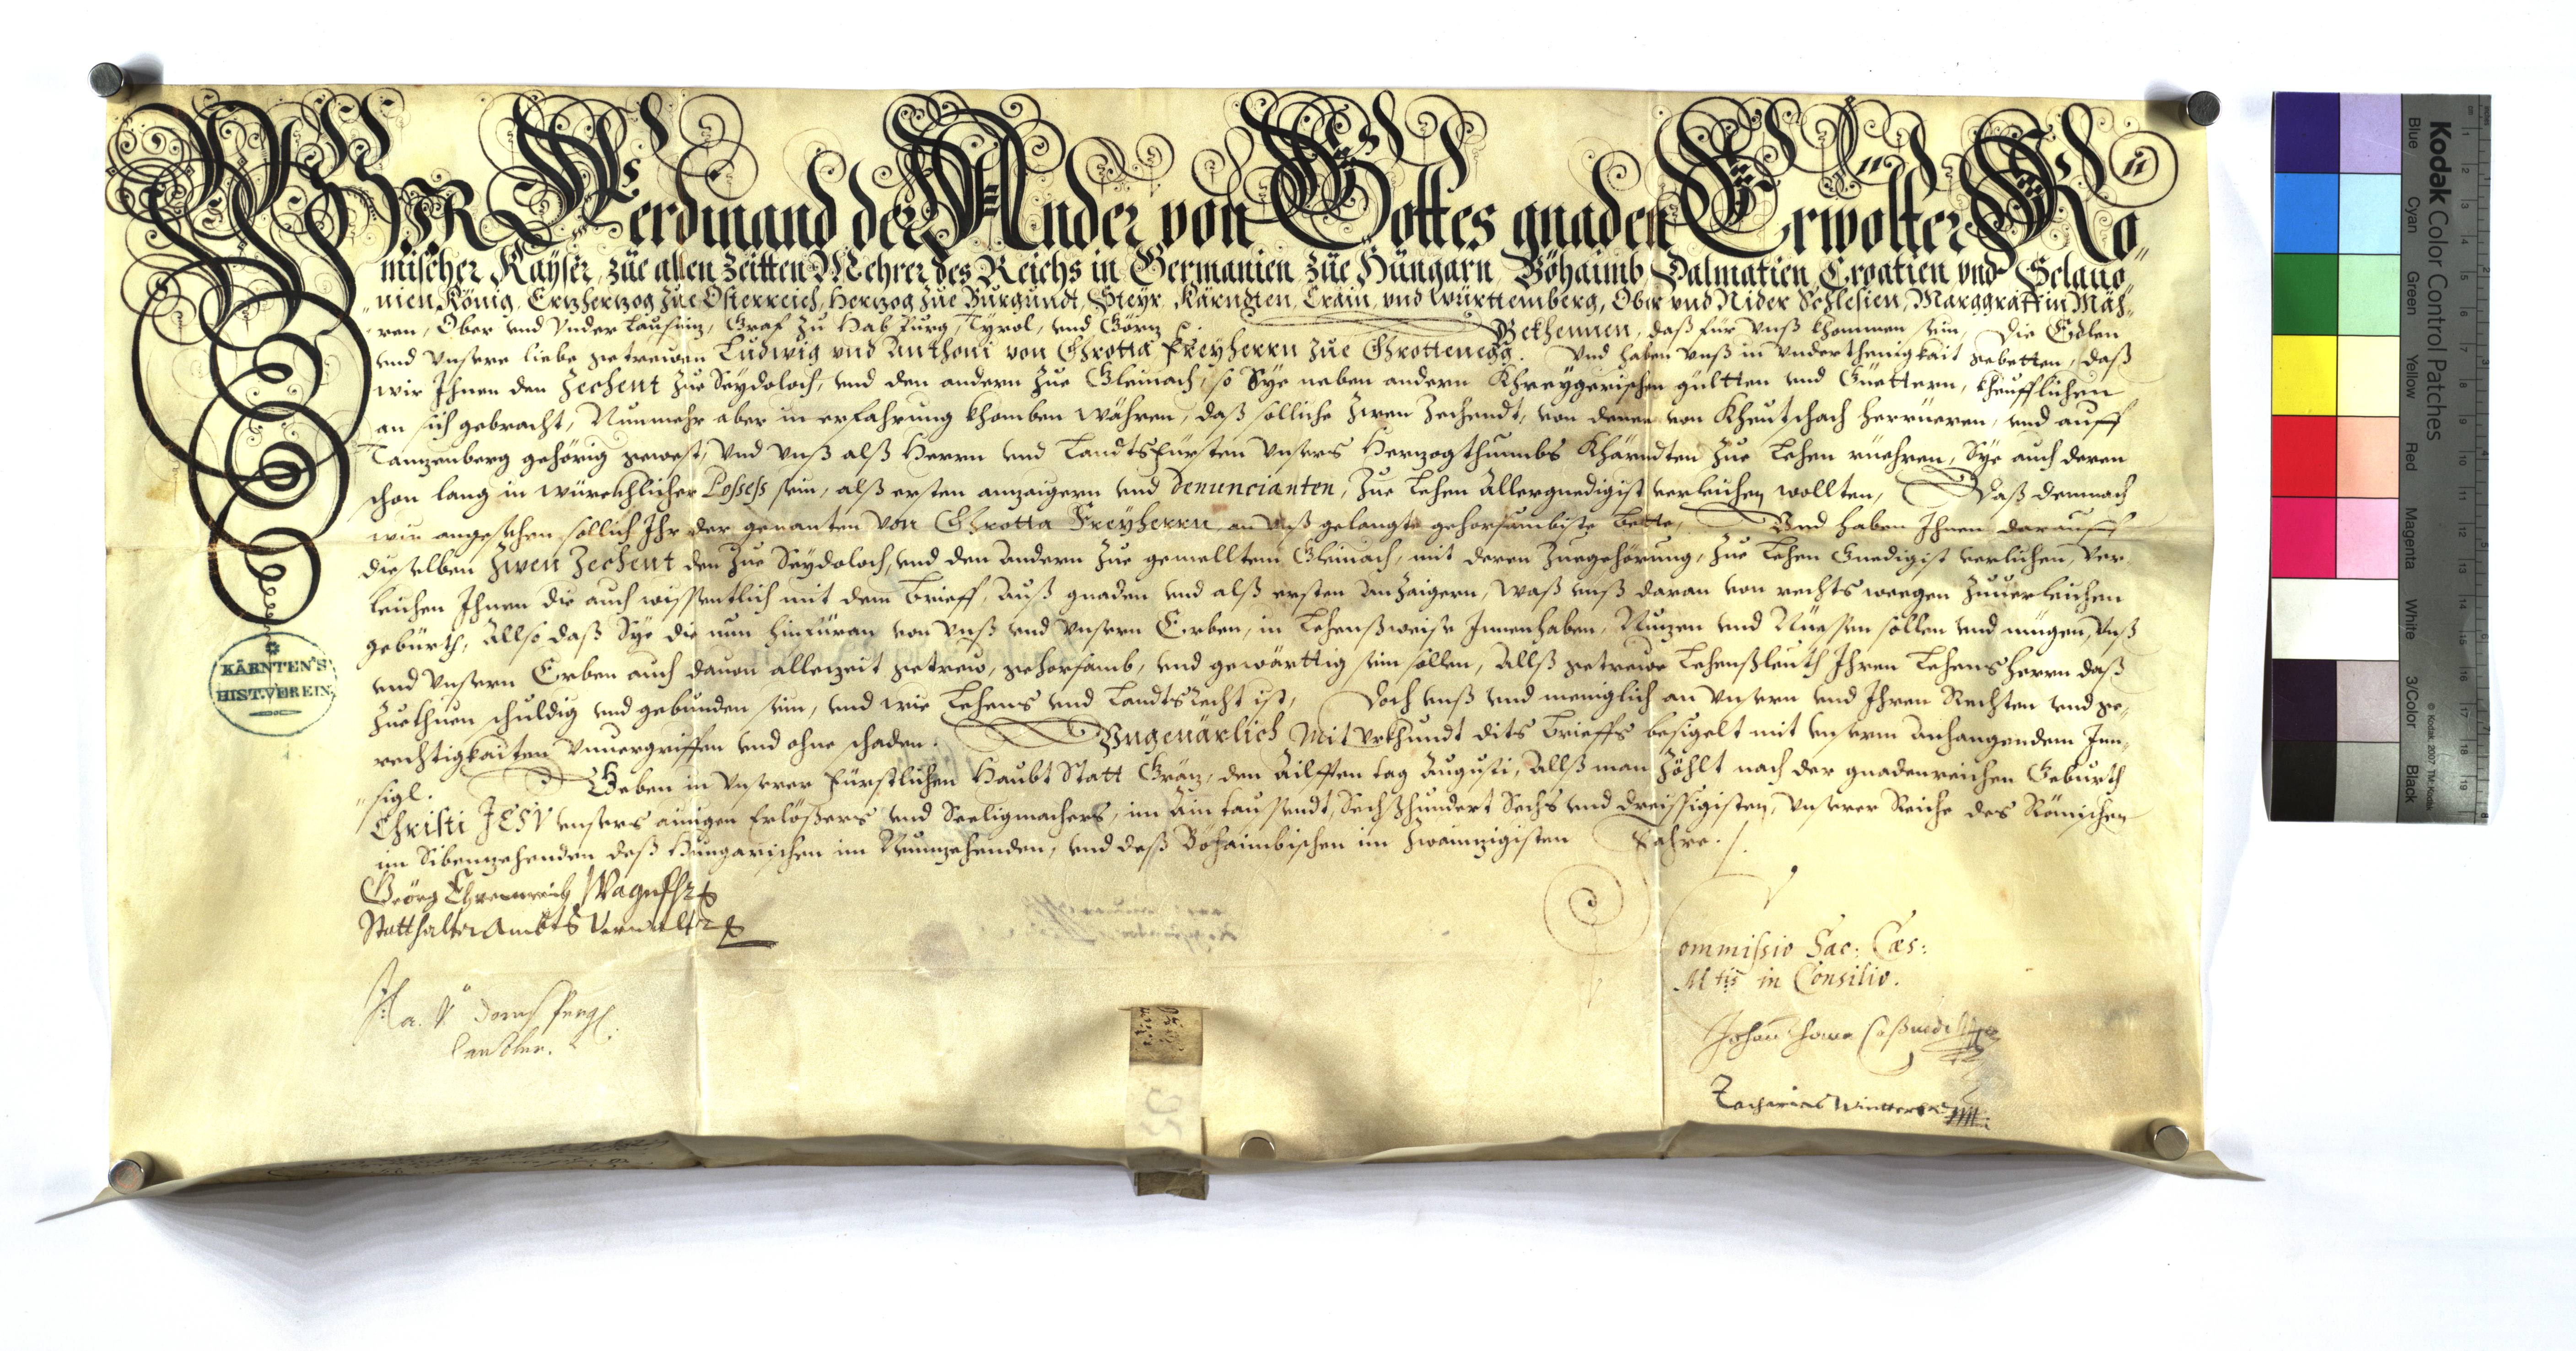 WIR Ferdinand der Ander von Gottes gnaden Erwölter Rö„
mischer Kayser, zue allen Zeitten Mehrer des Reichs in Germanien, zue Hungarn, Böhaimb, Dalmatien, Croatien vnd Sclauo„
„nien König, Ertzhertzog zue Osterreich, Hertzog zue Burgundt, Steyr, Kärndten, Crain, vnd Württemberg, Ober vnd Nider Schlesien, Marggraff in Mäh„
„ren, Ober vnd Vnder Lausnitz, Graf zu Habspurg, Tyrol, vnd Görtz Bekhennen, daß für Vnß khommen sein, Die Edlen
vnd Vnsere liebe getrewen Ludwig vnd Anthoni von Chrotta Freyherrn zue Chrottenegg. Vnd haben vnß in Vnderthenigkait gebetten, daß
wir Ihnen den Zechent zue Seydoloch, vnd den andern zue Gleinach, so Sye neben andern Khreygerischen gültten vnd Güettern, kheufflichen
an sich gebracht, Nunmehr aber in erfahrung khomben währen, daß solliche zwen Zechendt, von denen von Kheutschach herrüeren, vnd auff
Tanzenberg gehörig gewest, Vnd vnß alß Herrn vnd Landtsfürsten Vnsers Hertzogthumbs Khärndten zue Lehen rüehren, Sye auch deren
schon lang in würckhlicher Possess sein, alß ersten anzaigern vnd Denuncianten, zue Lehen Allergnedigist verleichen wollten, Daß demnach
wir angesehen sollich Ihr der genanten Von Chrotta Freyherrn an vnß gelangte gehorsambiste bette, Vnd haben Ihnen darauff
dieselben Zwen Zechent den zue Seydoloch, vnd den Andern zue gemelltem Gleinach, mit deren Zuegehörung, zue Lehen Gnedigist verlichen, Ver
leichen Ihnen die auch wissentlich mit dem brieff, Auß gnaden vnd alß ersten Anzaigern, Waß vnß daran von rechts weegen zuuerleichen
gebürth, Allso daß Sye die nun hinfüran von Vnß vnd Vnsern Erben, in Lehenßweise Innenhaben, Nutzen vnd Nüessen sollen vnd mügen, Vnß
vnd Vnsern Erben auch dauon allezeit getrew, gehorsamb, vnd gewärttig sein sollen, Allß getrewe Lehenßleuth Ihren Lehens Herrn daß
zuethuen schuldig vnd gebunden sein, vnd wie Lehens vnd Landtsrecht ist, Doch vnß vnd meniglich an Vnsern vnd Ihren Rechten vnd ge„
rechtigkaiten Vnuergriffen vnd ohne schaden. Vngeuärlich Mit Vrkhundt dits brieffs besigelt mit Vnserm Anhangendem Inn„
„sigl. Geben in Vnserer Fürstlichen Haubt Statt Grätz, den Ailfften tag Augusti, Allß man zöhlt nach der gnadenreichen Geburth
Christi JESV vnsers ainigen Erlößers vnd Seeligmachers, im Aintausendt, Sechßhundert Sechs vnd dreissigisten, Vnserer Reiche des Römischen
im Sibenzehenden deß Hungarischen im Neunzehenden, vnd deß Böhaimbischen im Zwainzigisten Jahre./.
Geörg Ehrenreich
Statthalter Ambts Verwalter
Commissio Sac: Cæs:
Mtis in Consilio.
Cantzler.
Johan
Zacharias
KÄRNTEN'S
HIST. VEREIN
Kodak Color Control Patches
© Kodak, 2007 TM: Kodak
Blue Cyan Green Yellow Red Magenta White 3/Color Black
1 2 3 4 5 6 7 8 9 10 11 12 13 14 15 16 17 18 19